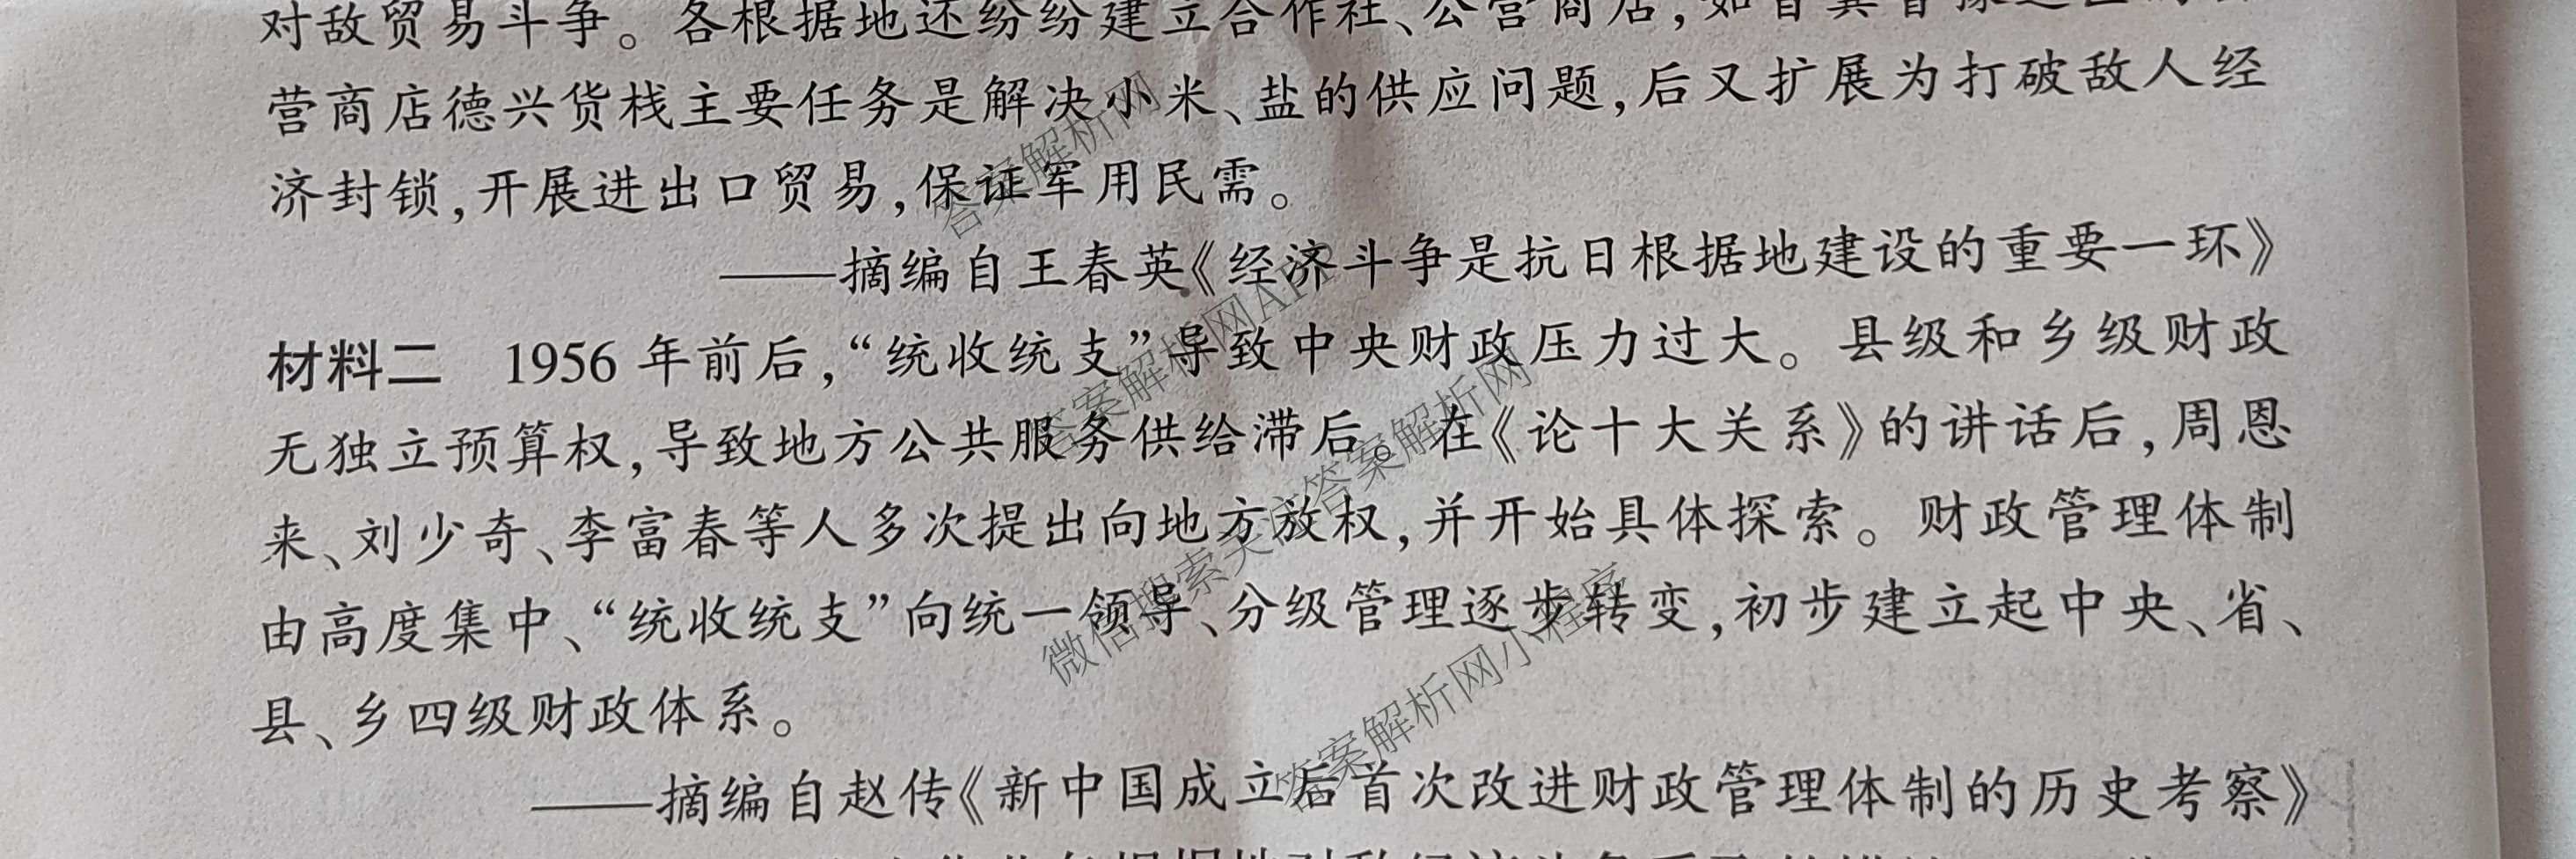 对敌贸易斗争。各根据地还纷纷建立合作社、公营商店,如晋冀鲁豫边区
营商店德兴货栈主要任务是解决小米、盐的供应问题,后又扩展为打破敌人经
济封锁,开展进出口贸易,保证军用民需。
——摘编自王春英《经济斗争是抗日根据地建设的重要一环》
材料二 1956 年前后,“统收统支”导致中央财政压力过大。县级和乡级财政
无独立预算权,导致地方公共服务供给滞后。在《论十大关系》的讲话后,周恩
来、刘少奇、李富春等人多次提出向地方放权,并开始具体探索。财政管理体制
由高度集中、“统收统支”向统一领导、分级管理逐步转变,初步建立起中央、省、
县、乡四级财政体系。
——摘编自赵传《新中国成立后首次改进财政管理体制的历史考察》
答案解析网
答案解析网APP
微信搜索关注答案解析网
答案解析网小程序